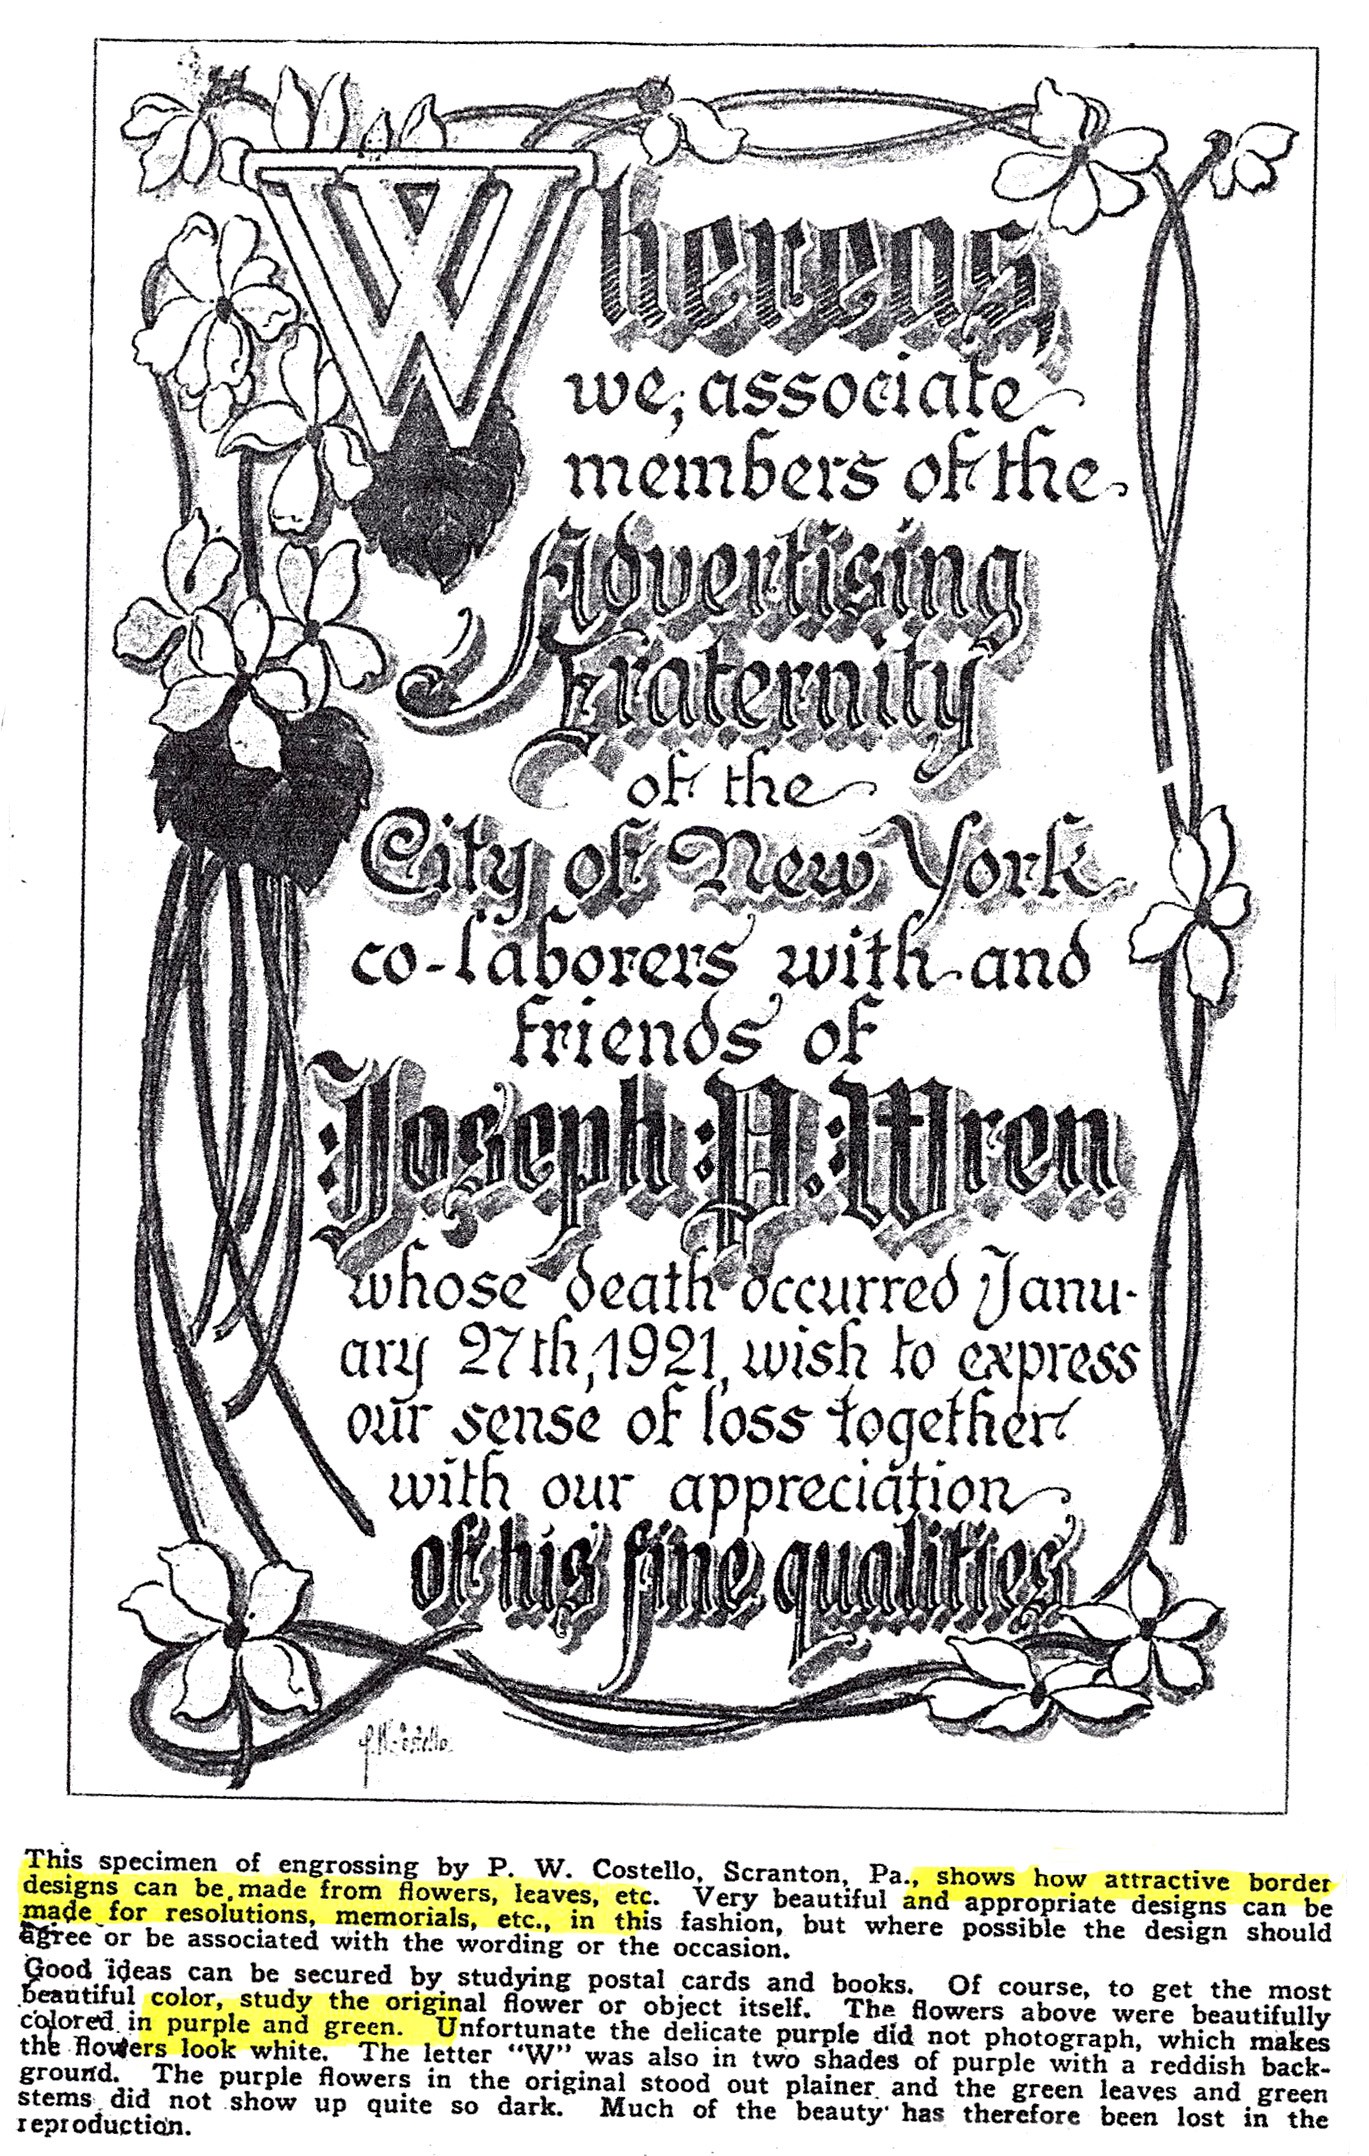 Whereas
we, associate
members of the
Advertising
Fraternity
of the
City of New York
co-laborers with and
friends of
Joseph P. Wren
whose death occurred Janu-
ary 27th, 1921, wish to express
our sense of loss together
with our appreciation
of his fine qualities
P.W. Costello.
This specimen of engrossing by P. W. Costello, Scranton, Pa., shows how attractive border
designs can be made from flowers, leaves, etc. Very beautiful and appropriate designs can be
made for resolutions, memorials, etc., in this fashion, but where possible the design should
agree or be associated with the wording or the occasion.
Good ideas can be secured by studying postal cards and books. Of course, to get the most
beautiful color, study the original flower or object itself. The flowers above were beautifully
colored in purple and green. Unfortunate the delicate purple did not photograph, which makes
the flowers look white. The letter "W" was also in two shades of purple with a reddish back-
ground. The purple flowers in the original stood out plainer and the green leaves and green
stems did not show up quite so dark. Much of the beauty has therefore been lost in the
reproduction.